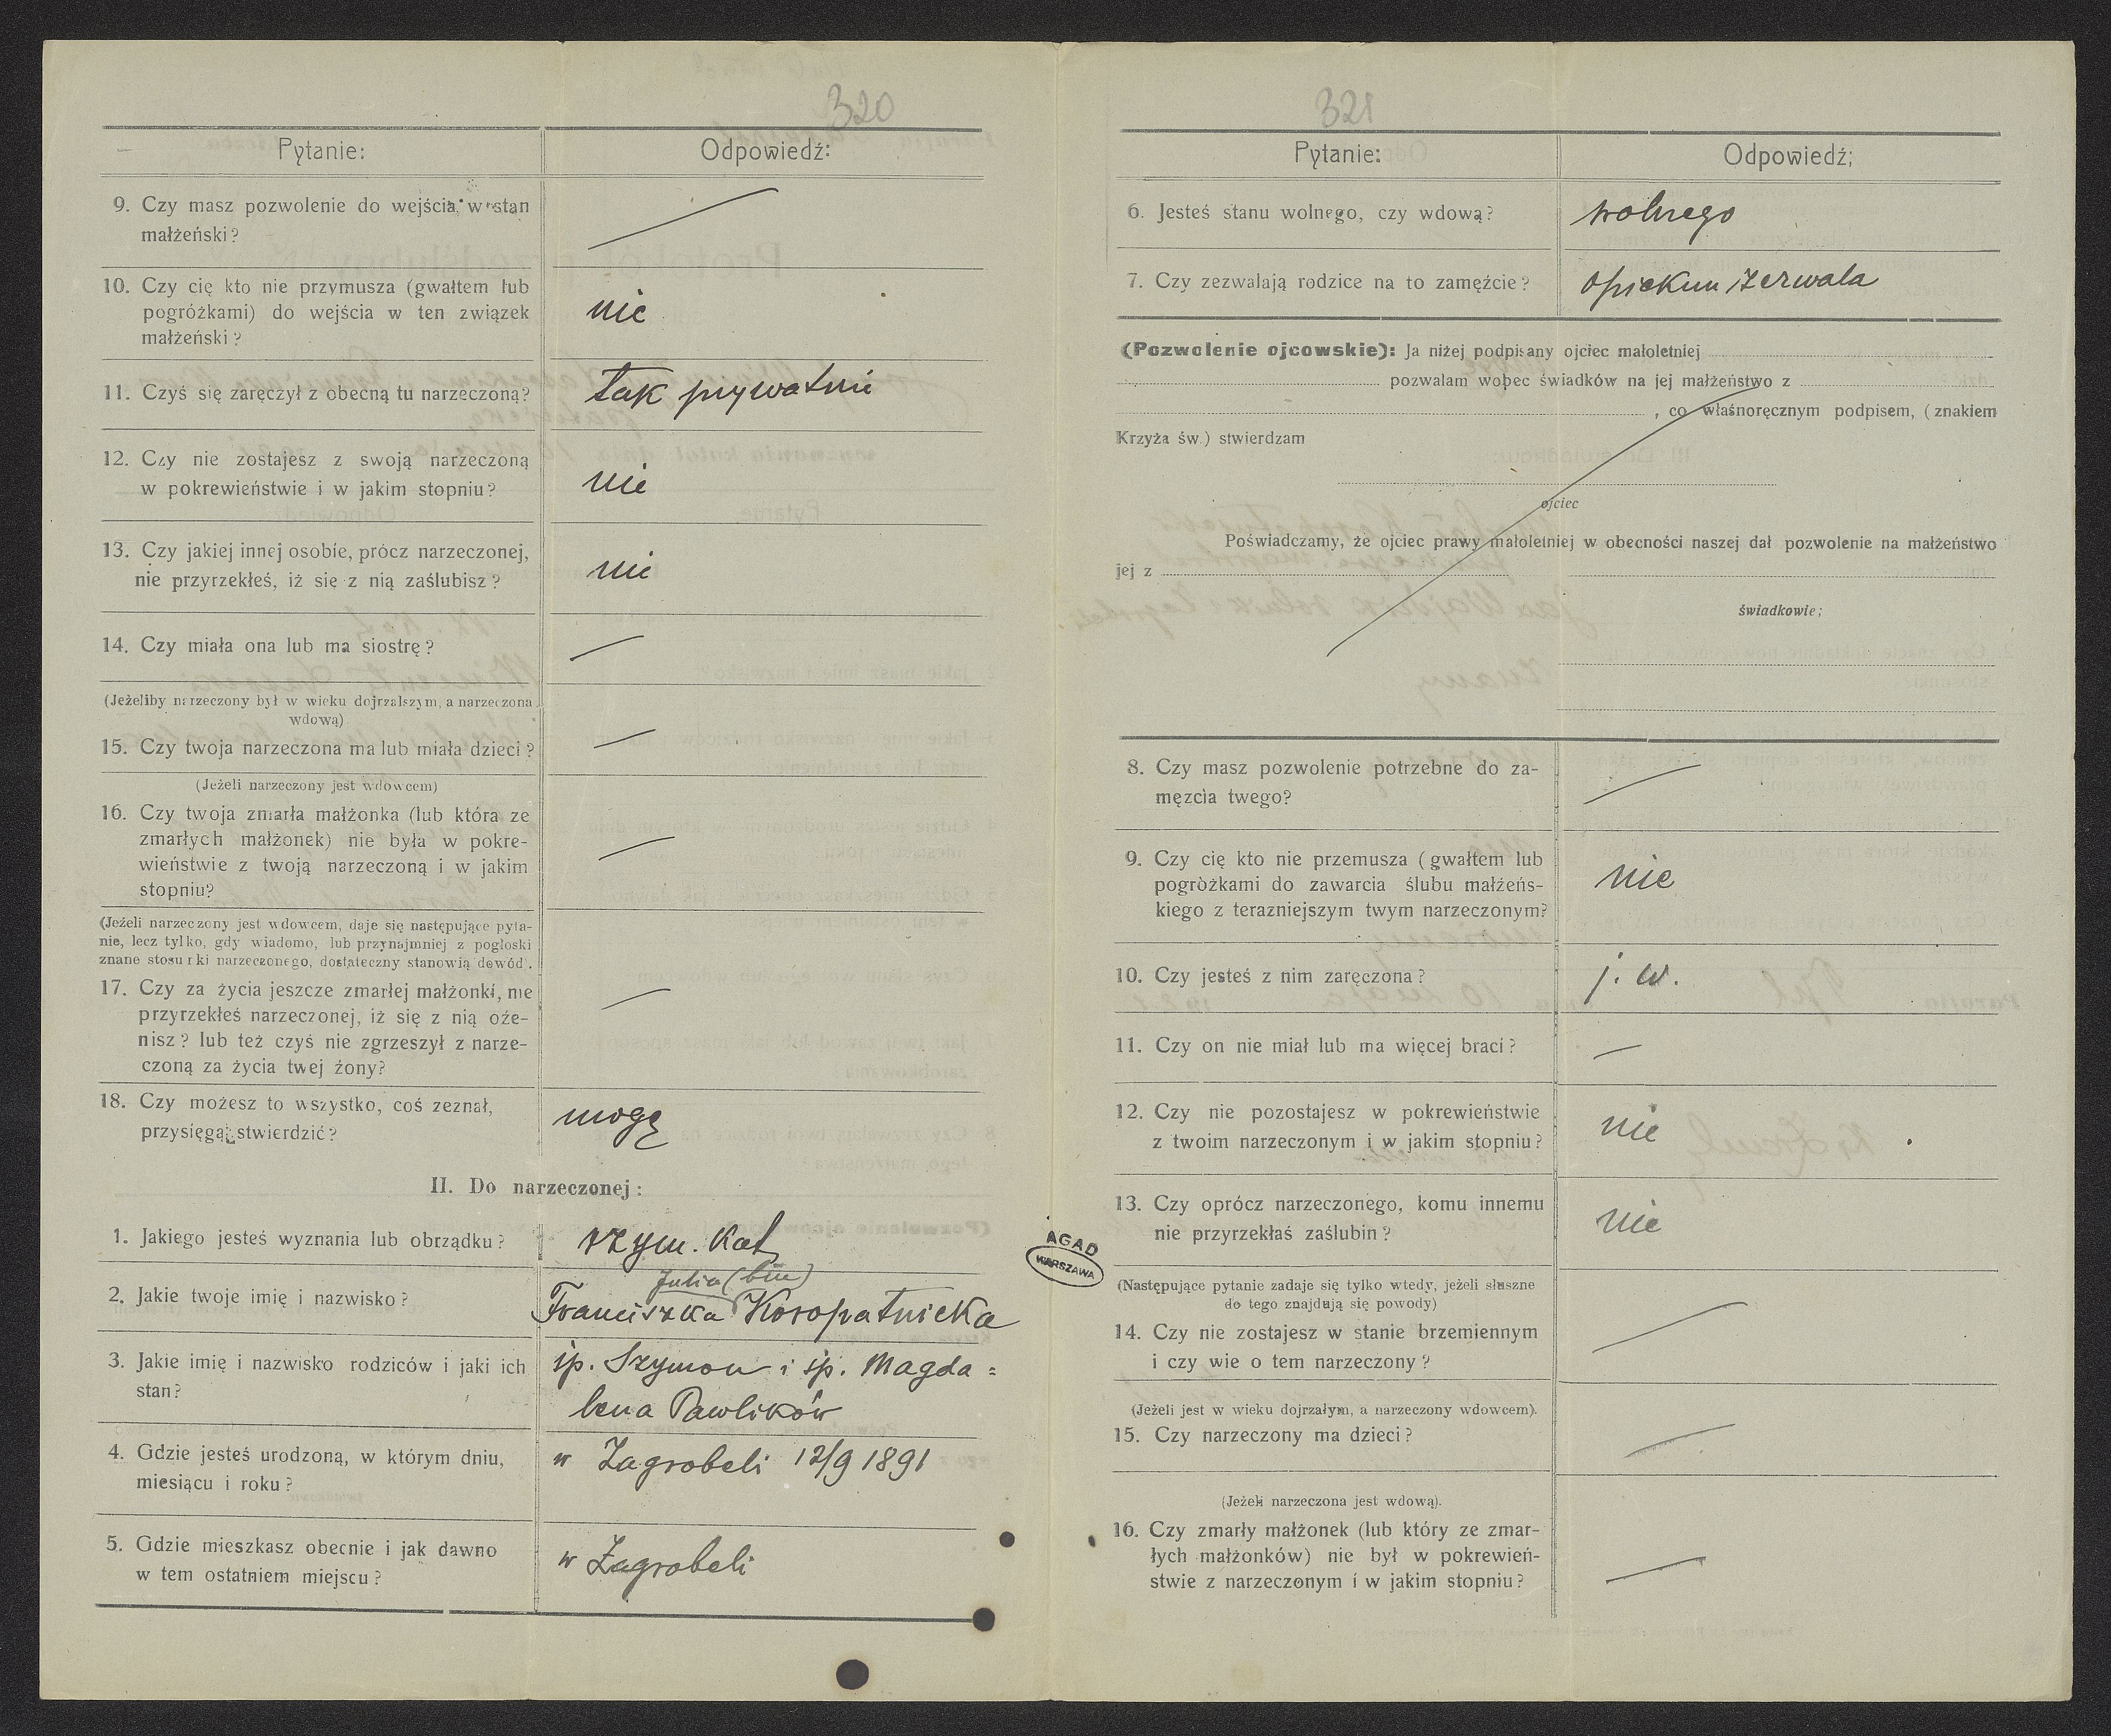 320
Pytanie:
Odpowiedź:
9. Czy masz pozwolenie do wejścia w stan
małżeński?
10. Czy cię kto nie przymusza (gwałtem lub
pogróżkami) do wejścia w ten związek
małżeński?
nie
11. Czyś się zaręczył z obecną tu narzeczoną?
tak prywatnie
12. Czy nie zostajesz z swoją narzeczoną
w pokrewieństwie i w jakim stopniu?
nie
13. Czy jakiej innej osobie, prócz narzeczonej,
nie przyrzekłeś, iż się z nią zaślubisz?
nie
14. Czy miała ona lub ma siostrę?
(Jeżeliby narzeczony był w wieku dojrzalszym, a narzeczona
wdową)
15. Czy twoja narzeczona ma lub miała dzieci?
(Jeżeli narzeczony jest wdowcem)
16. Czy twoja zmarła małżonka (lub która ze
zmarłych małżonek) nie była w pokre-
wieństwie z twoją narzeczoną i w jakim
stopniu?
(Jeżeli narzeczony jest wdowcem, daje się następujące pyta-
nie, lecz tylko, gdy wiadomo, lub przynajmniej z pogłoski
znane stosunki narzeczonego, dostateczny stanowią dowód).
17. Czy za życia jeszcze zmarłej małżonki, nie
przyrzekłeś narzeczonej, iż się z nią oże-
nisz? lub też czyś nie zgrzeszył z narze-
czoną za życia twej żony?
18. Czy możesz to wszystko, coś zeznał,
przysięgą stwierdzić?
mogę
II. Do narzeczonej:
1. Jakiego jesteś wyznania lub obrządku?
rzym. kat
2. Jakie twoje imię i nazwisko?
Julia (bin)
Franciszka Koropatnicka
3. Jakie imię i nazwisko rodziców i jaki ich
stan?
śp. Szymon i śp. Magda=
lena Pawlików
4. Gdzie jesteś urodzoną, w którym dniu,
miesiącu i roku?
w Zagrobeli 12/9 1891
5. Gdzie mieszkasz obecnie i jak dawno
w tem ostatniem miejscu?
w Zagrobeli
AGAD
WARSZAWA
321
Pytanie:
Odpowiedź;
6. Jesteś stanu wolnego, czy wdową?
wolnego
7. Czy zezwalają rodzice na to zamęźcie?
opiekun zezwala
(Pozwolenie ojcowskie): Ja niżej podpisany ojciec małoletniej
pozwalam wobec świadków na jej małżeństwo z
, co własnoręcznym podpisem, (znakiem
Krzyża św.) stwierdzam
ojciec
Poświadczamy, że ojciec prawy małoletniej w obecności naszej dał pozwolenie na małżeństwo
jej z
świadkowie;
8. Czy masz pozwolenie potrzebne do za-
męzcia twego?
9. Czy cię kto nie przemusza (gwałtem lub
pogróżkami do zawarcia ślubu małżeńs-
kiego z terazniejszym twym narzeczonym?
nie
10. Czy jesteś z nim zaręczona?
j. w.
11. Czy on nie miał lub ma więcej braci?
12. Czy nie pozostajesz w pokrewieństwie
z twoim narzeczonym i w jakim stopniu?
nie
13. Czy oprócz narzeczonego, komu innemu
nie przyrzekłaś zaślubin?
nie
(Następujące pytanie zadaje się tylko wtedy, jeżeli słuszne
do tego znajdują się powody)
14. Czy nie zostajesz w stanie brzemiennym
i czy wie o tem narzeczony?
(Jeżeli jest w wieku dojrzałym, a narzeczony wdowcem).
15. Czy narzeczony ma dzieci?
(Jeżeli narzeczona jest wdową).
16. Czy zmarły małżonek (lub który ze zmar-
łych małżonków) nie był w pokrewień-
stwie z narzeczonym i w jakim stopniu?